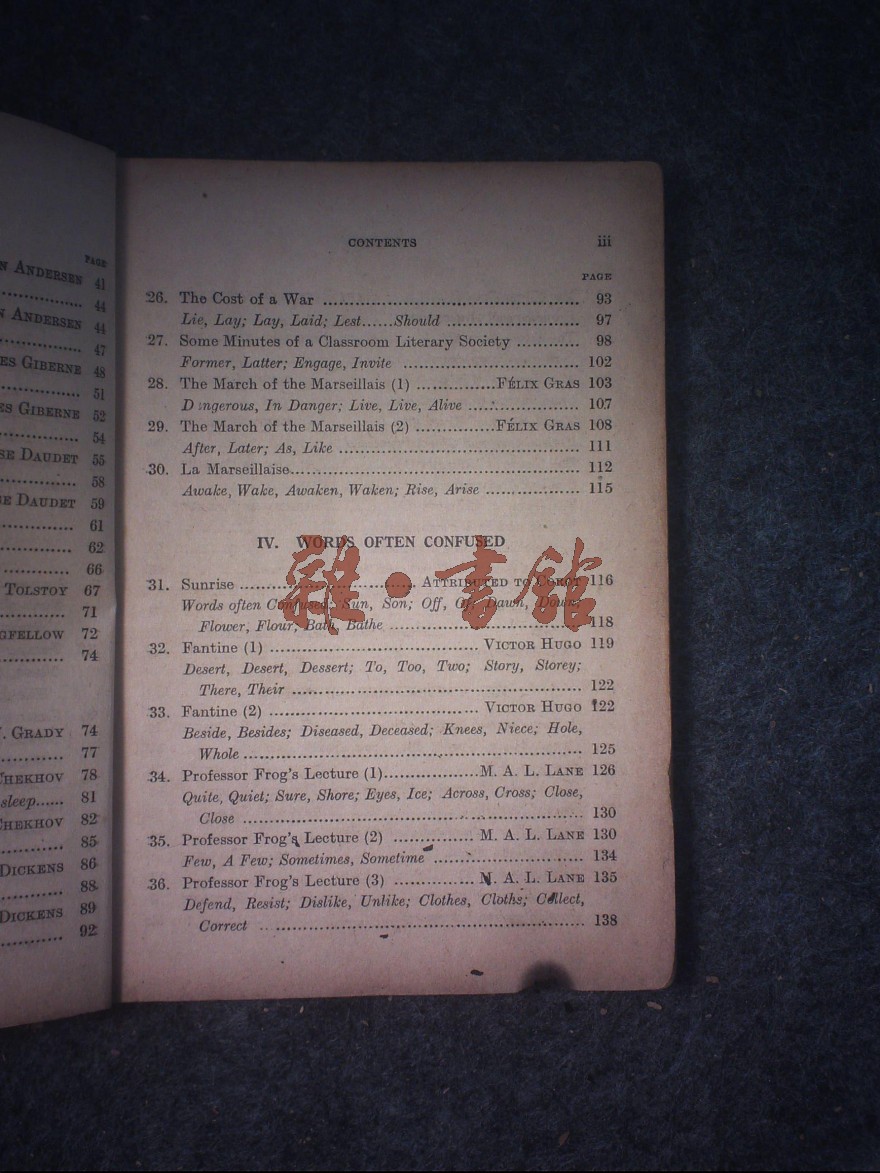 PAGE
N ANDERSEN 41
44
N ANDERSEN 44
47
ES GIBERNE 48
51
ES GIBERNE 52
54
SE DAUDET 55
58
SE DAUDET 59
61
62
66
TOLSTOY 67
71
GFELLOW 72
74
. GRADY 74
77
CHEKHOV 78
sleep...... 81
CHEKHOV 82
85
DICKENS 86
88
DICKENS 89
92
CONTENTS iii
PAGE
26. The Cost of a War 93
Lie, Lay; Lay, Laid; Lest......Should 97
27. Some Minutes of a Classroom Literary Society 98
Former, Latter; Engage, Invite 102
28. The March of the Marseillais (1) FÉLIX GRAS 103
Dangerous, In Danger; Live, Live, Alive 107
29. The March of the Marseillais (2) FÉLIX GRAS 108
After, Later; As, Like 111
30. La Marseillaise 112
Awake, Wake, Awaken, Waken; Rise, Arise 115
IV. WORDS OFTEN CONFUSED
31. Sunrise ATTRIBUTED TO COROT 116
Words often Confused: Sun, Son; Off, Of; Dawn, Down;
Flower, Flour; Bath, Bathe 118
32. Fantine (1) VICTOR HUGO 119
Desert, Desert, Dessert; To, Too, Two; Story, Storey;
There, Their 122
33. Fantine (2) VICTOR HUGO 122
Beside, Besides; Diseased, Deceased; Knees, Niece; Hole,
Whole 125
34. Professor Frog's Lecture (1) M. A. L. LANE 126
Quite, Quiet; Sure, Shore; Eyes, Ice; Across, Cross; Close,
Close 130
35. Professor Frog's Lecture (2) M. A. L. LANE 130
Few, A Few; Sometimes, Sometime 134
36. Professor Frog's Lecture (3) M. A. L. LANE 135
Defend, Resist; Dislike, Unlike; Clothes, Cloths; Collect,
Correct 138
雜·書館